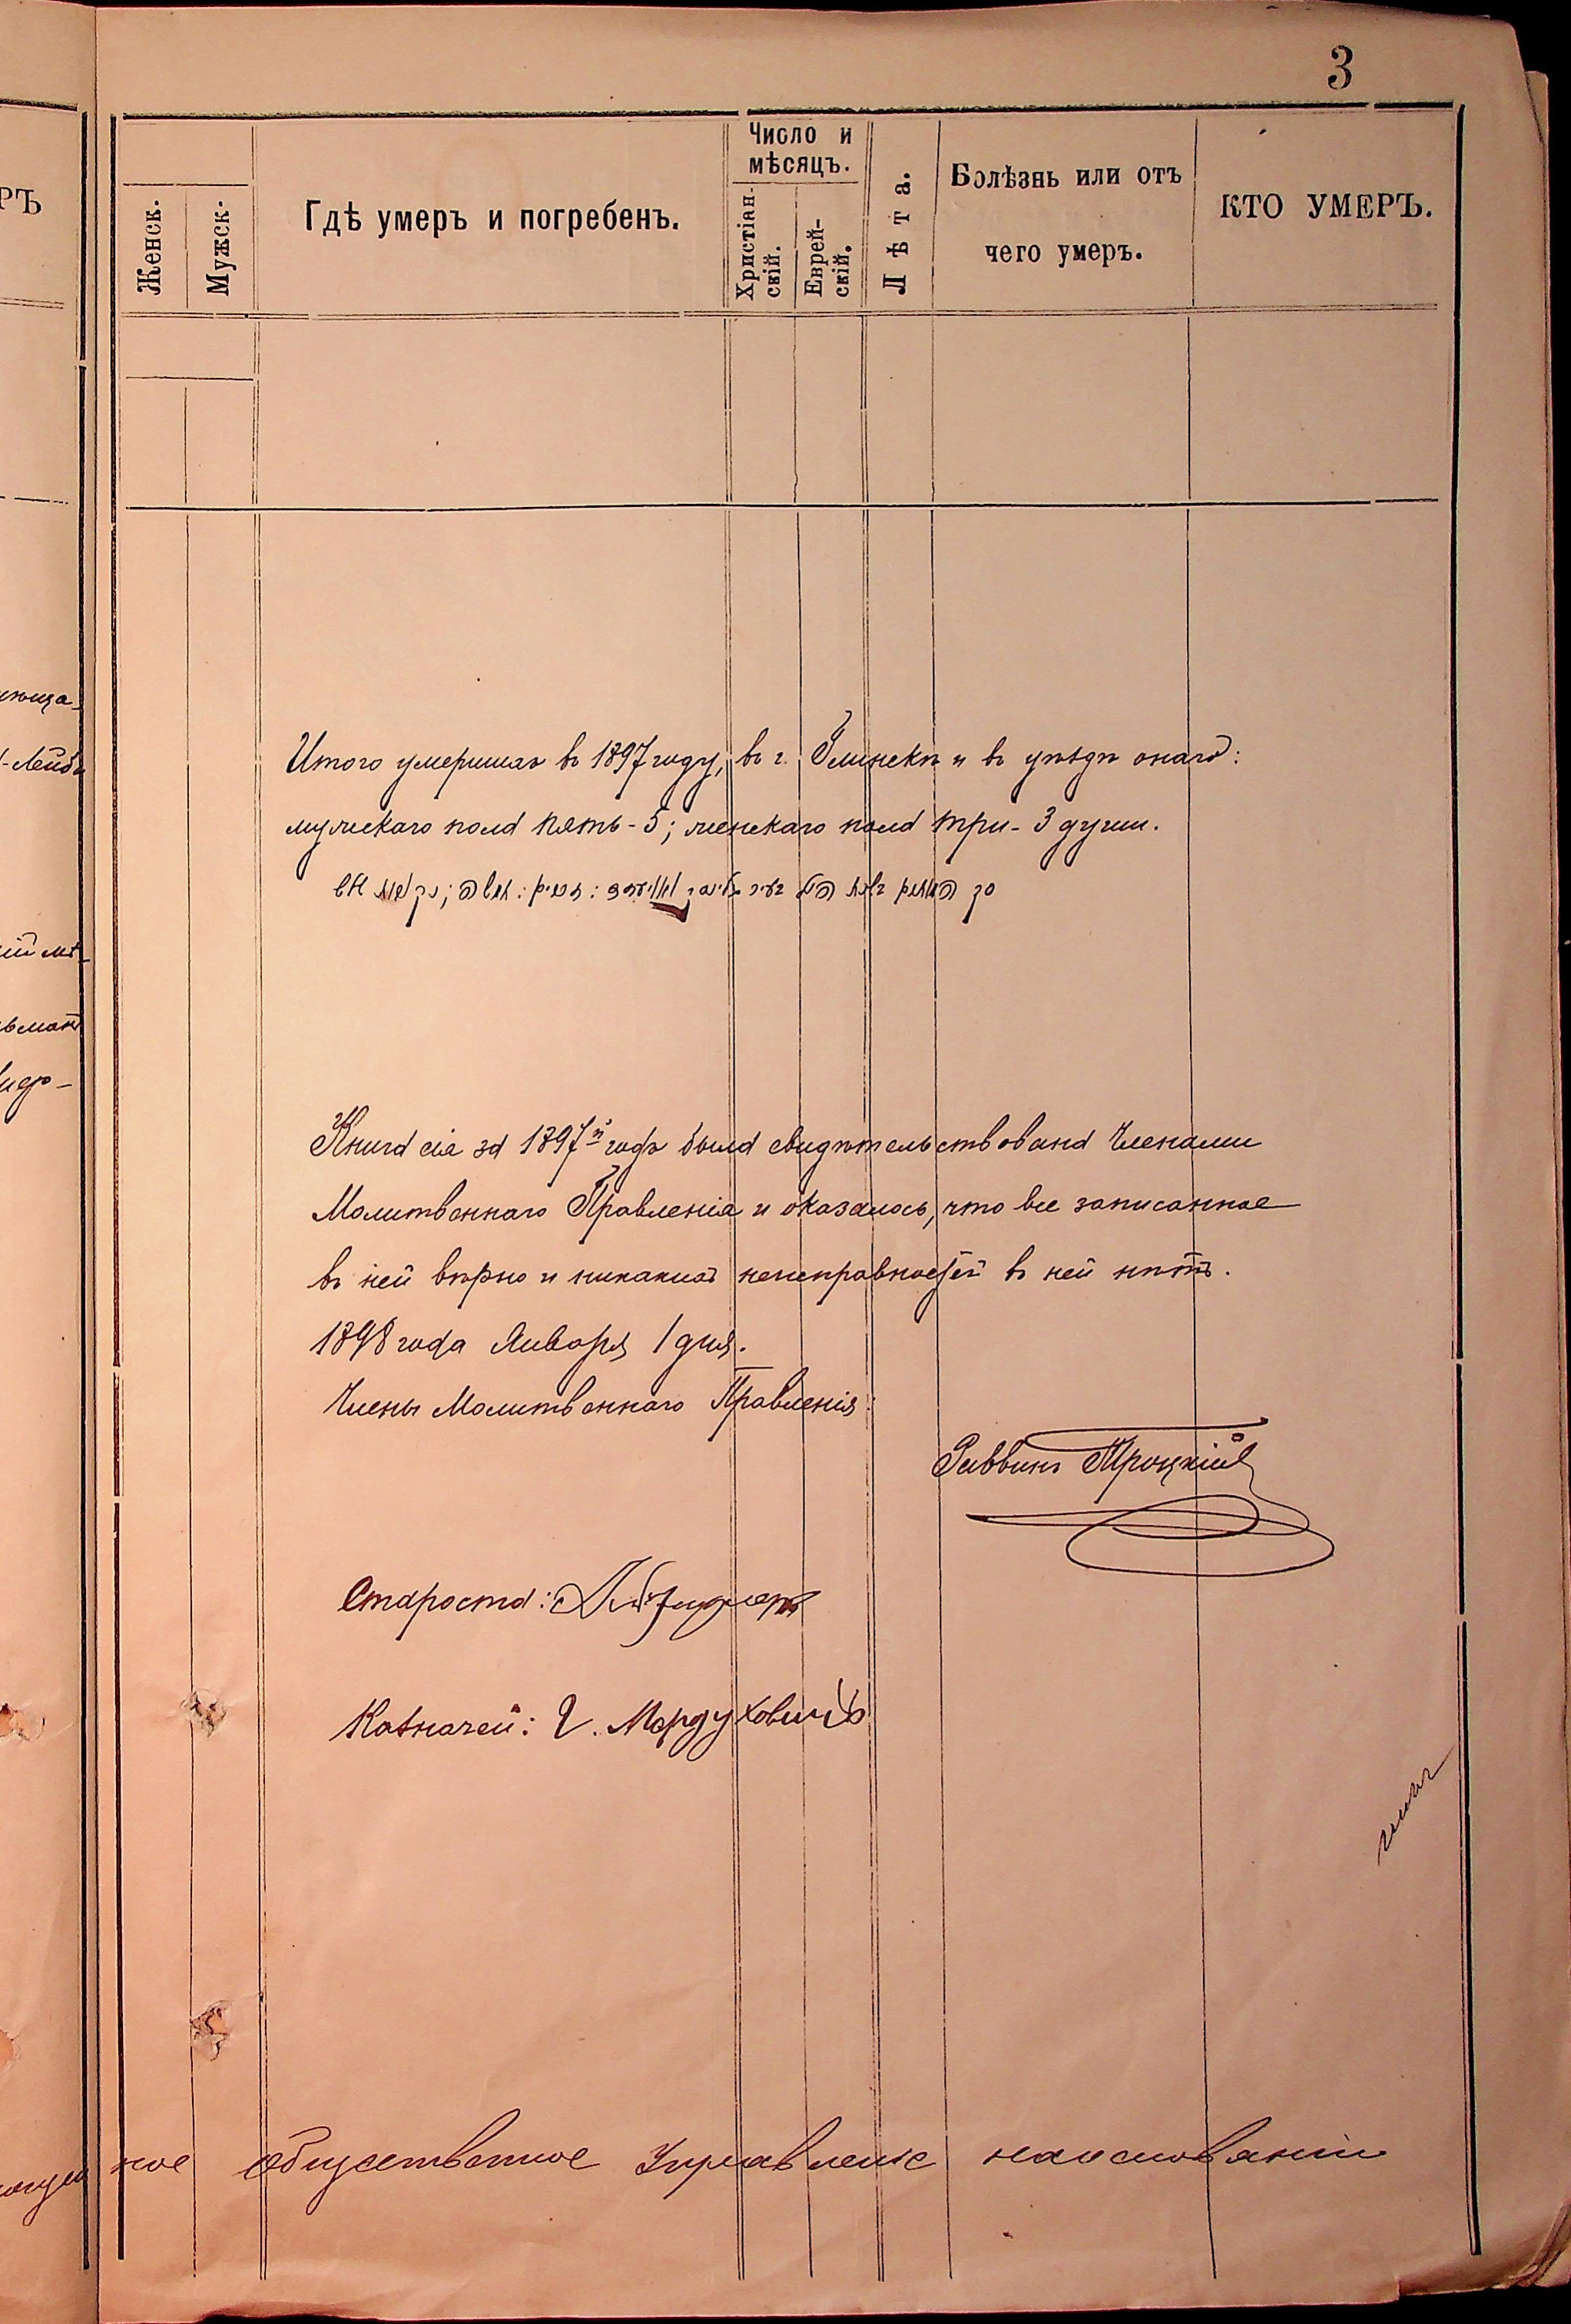 3
Женск.
Мужск.
Гдѣ умеръ и погребенъ.
Число и
мѣсяцъ.
Христіан-
скій.
Еврей-
скій.
Лѣта.
Болѣзнь или отъ
чего умеръ.
КТО УМЕРЪ.
РЪ
Итого умершихъ въ 1897 году, въ г. Глинскѣ и въ уѣздѣ онаго:
мужскаго пола пять - 5; женскаго пола три - 3 души.
Книга сія за 1897й годъ была свидѣтельствована Членами
Молитвеннаго Правленія и оказалось, что все записанное
въ ней вѣрно и никакихъ неисправностей въ ней нѣтъ.
1898 года Января 1 дня.
Члены Молитвеннаго Правленія:
Раввинъ Троцкій
Староста:
Казначей: Г. Мордуховичъ
ное общественное Управленіе на основаніи